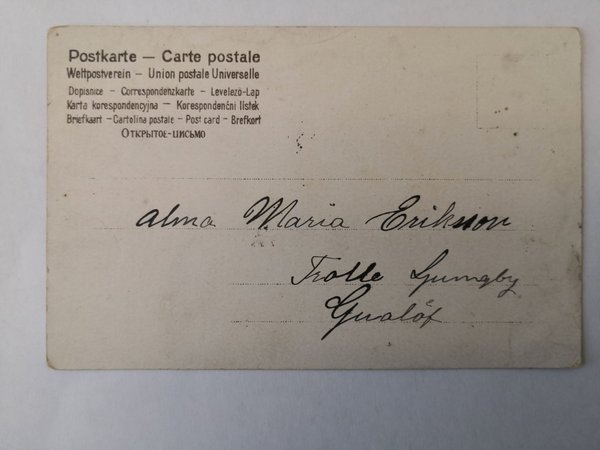 Postkarte — Carte postale
Weltpostverein – Union postale Universelle
Dopisnice – Correspondenzkarte – Levelező-Lap
Karta korespondencyjna – Korespondenční lístek
Briefkaart – Cartolina postale – Post card – Brefkort
Открытое-письмо
Alma Maria Erikson
Trolle Ljungby
Gualöf